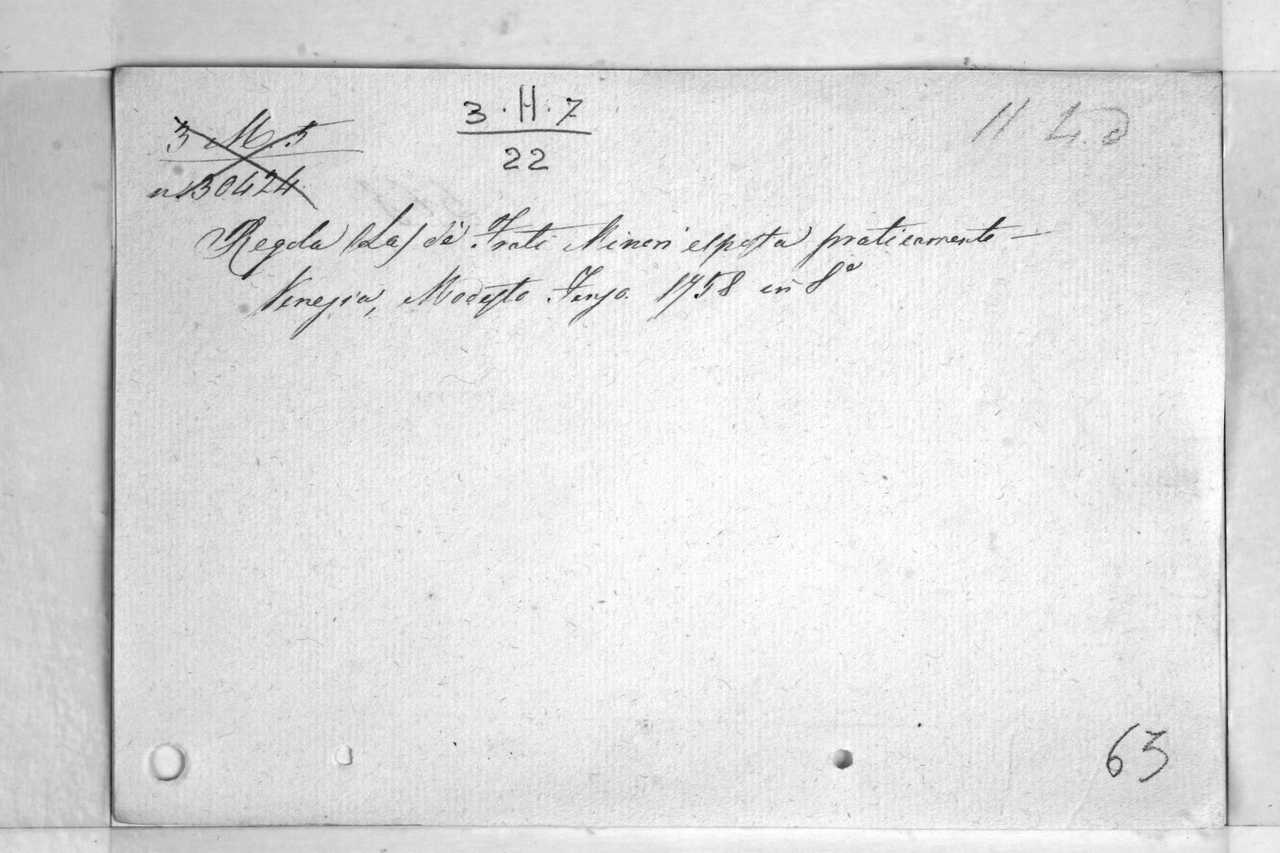 3 M 5
n 30424
3 . H . 7
22
11. 4. d
Regola (La) de' Frati Minori esposta praticamente —
Venezia, Modesto Fenzo. 1758 in 8°
63